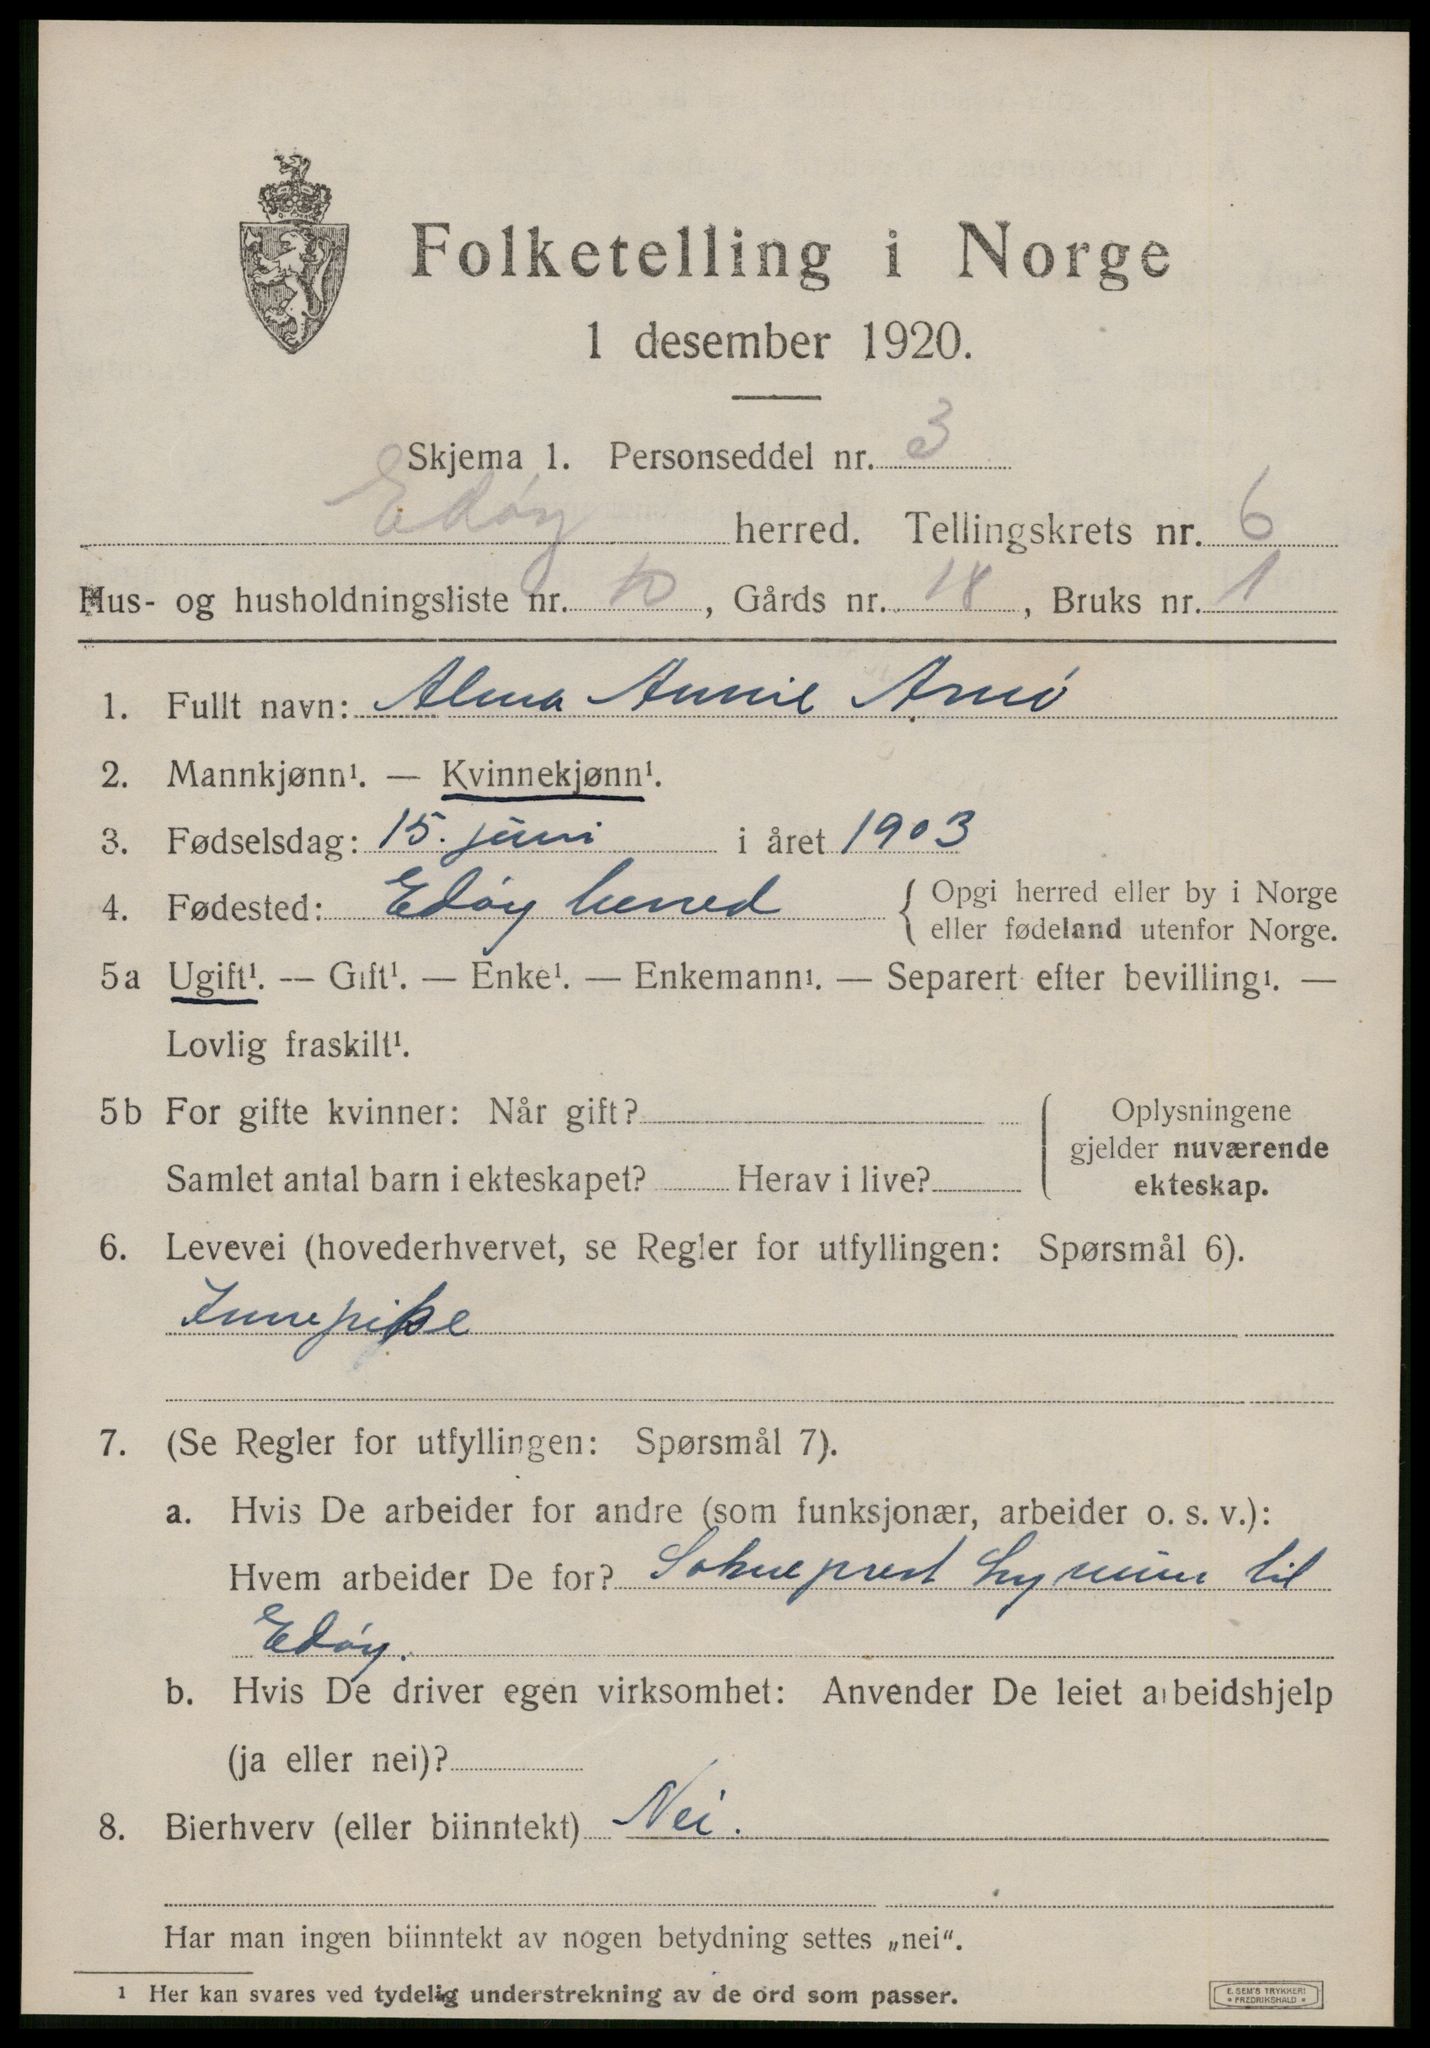 Folketelling i Norge
1 desember 1920.
Skjema 1. Personseddel nr. 3
Edøy herred. Tellingskrets nr. 6
Hus- og husholdningsliste nr. 10, Gårds nr. 18, Bruks nr. 1
1. Fullt navn: Alma Annie Arnø
2. Mannkjønn¹. — Kvinnekjønn¹.
3. Fødselsdag: 15. juni i året 1903
4. Fødested: Edøy herred { Opgi herred eller by i Norge
eller fødeland utenfor Norge.
5a Ugift¹. — Gift¹. — Enke¹. — Enkemann¹. — Separert efter bevilling¹. —
Lovlig fraskilt¹.
5b For gifte kvinner: Når gift? { Oplysningene
gjelder nuværende
Samlet antal barn i ekteskapet? Herav i live? ekteskap.
6. Levevei (hovederhvervet, se Regler for utfyllingen: Spørsmål 6).
Innepike
7. (Se Regler for utfyllingen: Spørsmål 7).
a. Hvis De arbeider for andre (som funksjonær, arbeider o. s. v.):
Hvem arbeider De for? Sokneprest til
Edøy.
b. Hvis De driver egen virksomhet: Anvender De leiet arbeidshjelp
(ja eller nei)?
8. Bierhverv (eller biinntekt) Nei.
Har man ingen biinntekt av nogen betydning settes „nei“.
¹ Her kan svares ved tydelig understrekning av de ord som passer.
E. SEM'S TRYKKERI
• FREDRIKSHALD •